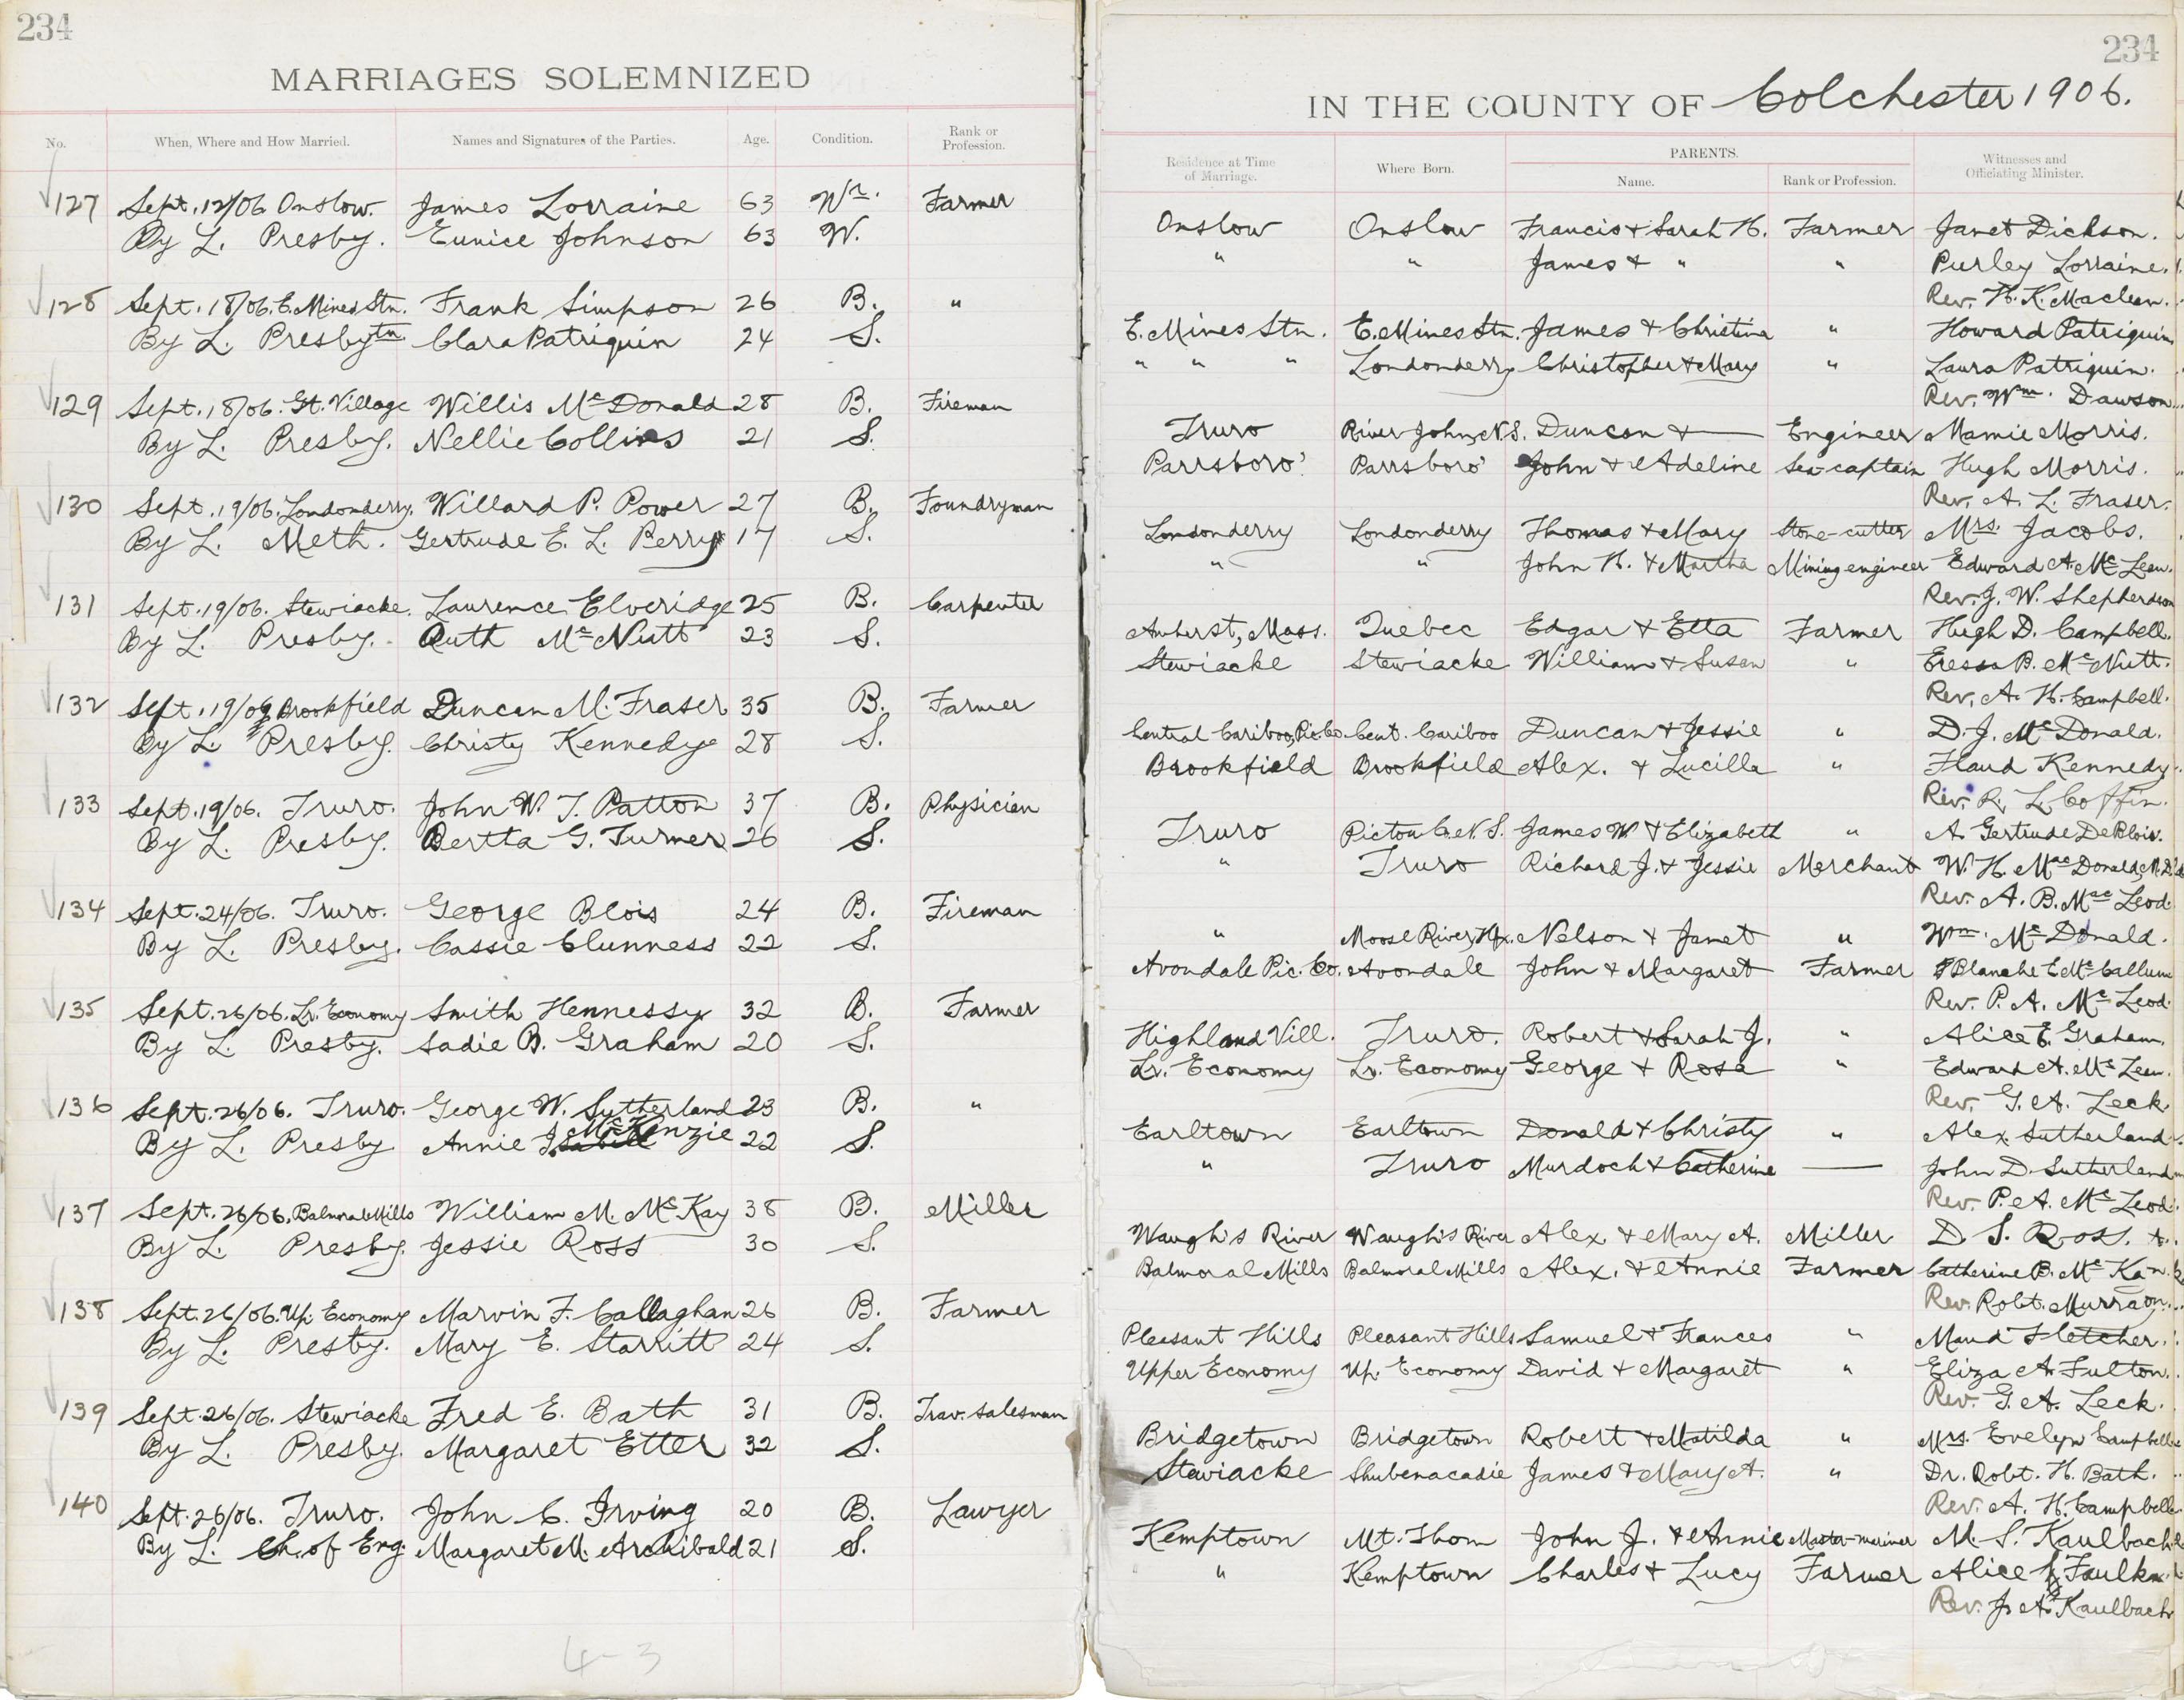 234
MARRIAGES SOLEMNIZED
No. When, Where and How Married. Names and Signatures of the Parties. Age. Condition. Rank or Profession.
127 Sept. 12/06 Onslow. James Lorraine 63 Wr. Farmer
By L. Presby. Eunice Johnson 63 W.
128 Sept. 18/06. E. Mines Stn. Frank Simpson 26 B. "
By L. Presbytn Clara Patriquin 24 S.
129 Sept. 18/06. Gt. Village Willis McDonald 28 B. Fireman
By L. Presby. Nellie Collins 21 S.
130 Sept. 19/06. Londonderry. Willard P. Power 27 B. Foundryman
By L. Meth. Gertrude E. L. Perry 17 S.
131 Sept. 19/06. Stewiacke. Laurence Elveridge 25 B. Carpenter
By L. Presby. Ruth McNutt 23 S.
132 Sept. 19/06 Brookfield Duncan M. Fraser 35 B. Farmer
By L. Presby. Christy Kennedy 28 S.
133 Sept. 19/06. Truro. John W. T. Patton 37 B. Physician
By L. Presby. Bertta G. Turner 26 S.
134 Sept. 24/06. Truro. George Blois 24 B. Fireman
By L. Presby. Cassie Clunness 22 S.
135 Sept. 26/06. Lr. Economy Smith Hennessy 32 B. Farmer
By L. Presby. Sadie B. Graham 20 S.
136 Sept. 26/06. Truro. George W. Sutherland 23 B. "
By L. Presby Annie J. McKenzie 22 S.
137 Sept. 26/06. Balmoral Mills William M. McKay 38 B. Miller
By L. Presby. Jessie Ross 30 S.
138 Sept. 26/06. Up. Economy Marvin F. Callaghan 26 B. Farmer
By L. Presby. Mary E. Starritt 24 S.
139 Sept. 26/06. Stewiacke Fred E. Bath 31 B. Trav. salesman
By L. Presby. Margaret Etter 32 S.
140 Sept. 26/06. Truro. John C. Irving 20 B. Lawyer
By L. Ch. of Eng. Margaret M. Archibald 21 S.
4-3
234
IN THE COUNTY OF Colchester 1906.
Residence at Time of Marriage. Where Born. PARENTS. Name. Rank or Profession. Witnesses and Officiating Minister.
Onslow Onslow Francis & Sarah H. Farmer Janet Dickson.
" " James & " " Purley Lorraine.
Rev. H. K. Maclean.
E. Mines Stn. E. Mines Stn. James & Christina " Howard Patriquin
" " " Londonderry Christopher & Mary " Laura Patriquin.
Rev. Wm. Dawson
Truro River John, N.S. Duncan & — Engineer Mamie Morris.
Parrsboro' Parrsboro' John & Adeline Sea-captain Hugh Morris.
Rev. A. L. Fraser.
Londonderry Londonderry Thomas & Mary Stone-cutter Mrs. Jacobs.
" " John H. & Martha Mining engineer Edward A. McLean.
Rev. J. W. Shepherdson
Amherst, Mass. Quebec Edgar & Etta Farmer Hugh D. Campbell.
Stewiacke Stewiacke William & Susan " Eressa B. McNutt.
Rev. A. H. Campbell.
Central Cariboo, Pic. Co. Cent. Cariboo Duncan & Jessie " D. J. McDonald.
Brookfield Brookfield Alex. & Lucilla " Kennedy
Rev. R. L. Coffin.
Truro Pictou Co. N.S. James W & Elizabeth " A. Gertrude DeBlois.
" Truro Richard J. & Jessie Merchant W. H. MacDonald, M.D.
Rev. A. B. MacLeod
" Moose River, Hfx. Nelson & Janet " Wm. McDonald.
Avondale Pic. Co. Avondale John & Margaret Farmer Blanche E. McCallum
Rev. P. A. McLeod.
Highland Vill. Truro. Robert & Sarah J. " Alice E. Graham.
Lr. Economy Lr. Economy George & Rosa " Edward A. McLean.
Rev. G. A. Leck.
Earltown Earltown Donald & Christy " Alex. Sutherland
" Truro Murdoch & Catherine — John D. Sutherland
Rev. P. A. McLeod.
Waugh's River Waugh's River Alex. & Mary A. Miller D. S. Ross.
Balmoral Mills Balmoral Mills Alex. & Annie Farmer Catherine B. McKa
Rev. Robt. Murra
Pleasant Hills Pleasant Hills Samuel & Frances " Maud Fletcher.
Upper Economy Up. Economy David & Margaret " Eliza A. Fulton.
Rev. G. A. Leck.
Bridgetown Bridgetown Robert & Matilda " Mrs. Evelyn Campbell
Stewiacke Shubenacadie James & Mary A. " Dr. Robt. H. Bath.
Rev. A. H. Campbell
Kemptown Mt. Thom John J. & Annie Master-mariner M. S. Kaulbach
" Kemptown Charles & Lucy Farmer Alice Faulkn
Rev. J. A. Kaulbach